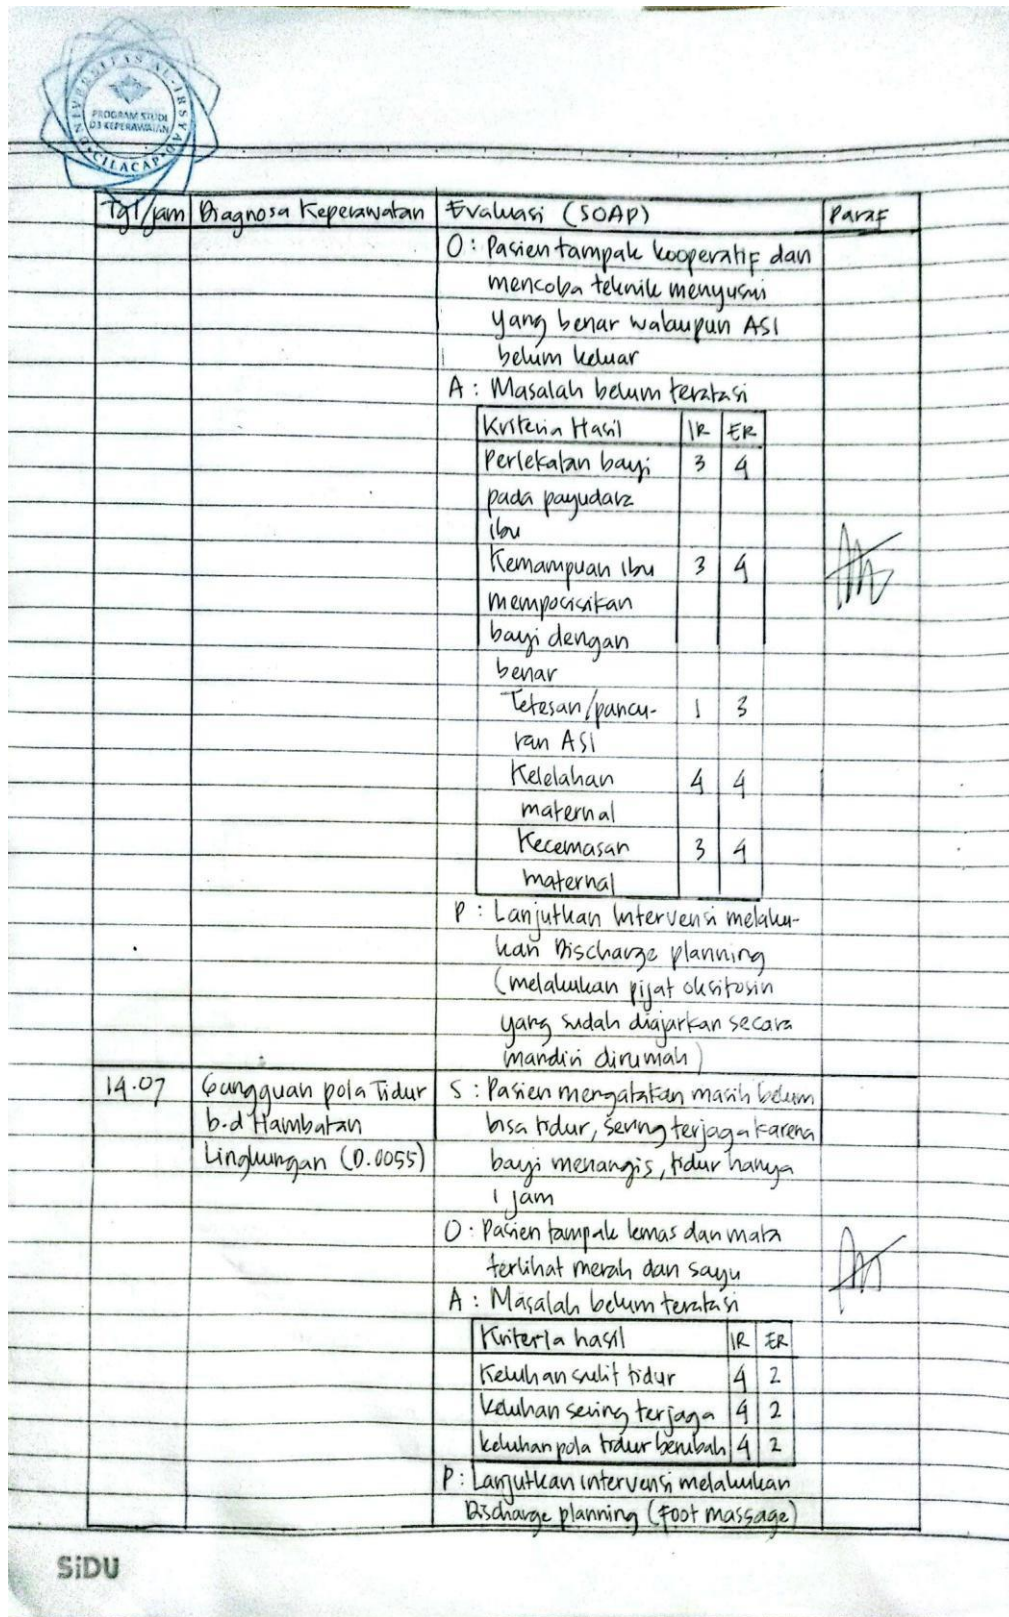 UNIVERSITAS AL-IRSYAD
PROGRAM STUDI
D3 KEPERAWATAN
CILACAP
Tgl/jam Diagnosa Keperawatan Evaluasi (SOAP) Paraf
O : Pasien tampak kooperatif dan
mencoba teknik menyusui
yang benar walaupun ASI
belum keluar
A : Masalah belum teratasi
Kriteria Hasil IR ER
Perlekatan bayi 3 4
pada payudara
ibu
Kemampuan ibu 3 4
memposisikan
bayi dengan
benar
Tetesan/pancu- 1 3
ran ASI
Kelelahan 4 4
maternal
Kecemasan 3 4
maternal
P : Lanjutkan intervensi melaku-
kan Discharge planning
(melakukan pijat oksitosin
yang sudah diajarkan secara
mandiri dirumah)
14.07 Gangguan pola Tidur S : Pasien mengatakan masih belum
b.d Hambatan bisa tidur, sering terjaga karena
Lingkungan (D.0055) bayi menangis, tidur hanya
1 jam
O : Pasien tampak lemas dan mata
terlihat merah dan sayu
A : Masalah belum teratasi
Kriteria hasil IR ER
Keluhan sulit tidur 4 2
Keluhan sering terjaga 4 2
keluhan pola tidur berubah 4 2
P : Lanjutkan intervensi melakukan
Discharge planning (Foot massage)
SiDU